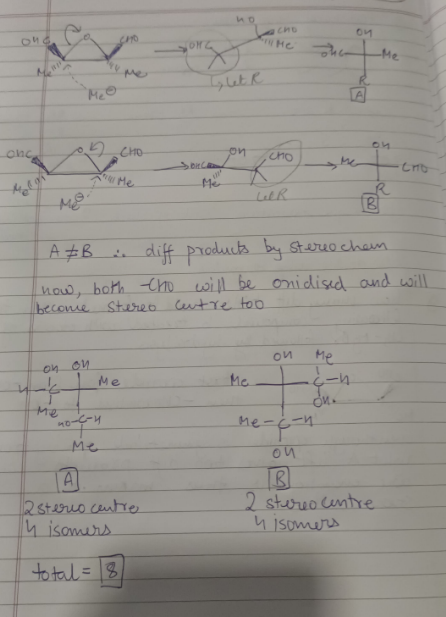 OHC O CHO
Me Me
Me⊖
HO CHO
OHC Me
Let R
OH
OHC Me
R
A
OHC O CHO
Me Me
Me⊖
OHC OH CHO
Me
Let R
OH
Me CHO
R
B
A ≠ B ∴ diff products by stereochem
now, both -CHO will be onidised and will
become stereo centre too
OH OH
H C Me
Me HO-C-H
Me
A
2 stereo centre
4 isomers
OH Me
Me C-H
OH
Me-C-H
OH
B
2 stereo centre
4 isomers
total = 8